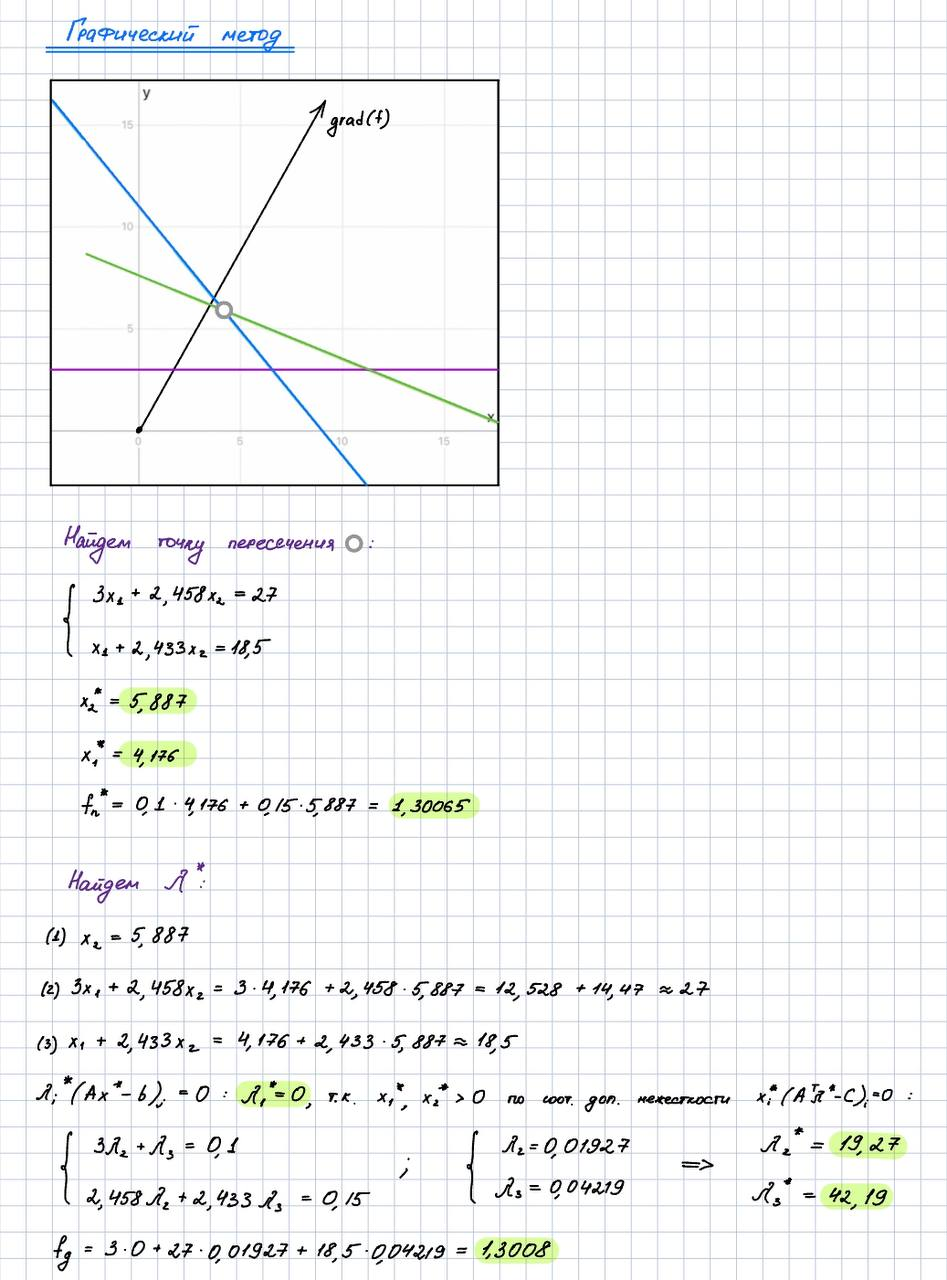 Графический метод
y
grad(f)
15
10
5
x
0 5 10 15
Найдем точку пересечения O:
3x₁ + 2,458x₂ = 27
x₁ + 2,433x₂ = 18,5
x₂* = 5,887
x₁* = 4,176
fₙ* = 0,1 · 4,176 + 0,15 · 5,887 = 1,30065
Найдем Λ*:
(1) x₂ = 5,887
(2) 3x₁ + 2,458x₂ = 3 · 4,176 + 2,458 · 5,887 = 12,528 + 14,47 ≈ 27
(3) x₁ + 2,433x₂ = 4,176 + 2,433 · 5,887 ≈ 18,5
Λᵢ*(Ax* - b)ᵢ = 0 : Λ₁* = 0, т.к. x₁*, x₂* > 0 по соот. доп. нежесткости xᵢ*(AᵀΛ* - C)ᵢ = 0 :
3Λ₂ + Λ₃ = 0,1 ; Λ₂ = 0,01927 => Λ₂* = 19,27
2,458Λ₂ + 2,433Λ₃ = 0,15 Λ₃ = 0,04219 Λ₃* = 42,19
fg = 3 · 0 + 27 · 0,01927 + 18,5 · 0,04219 = 1,3008